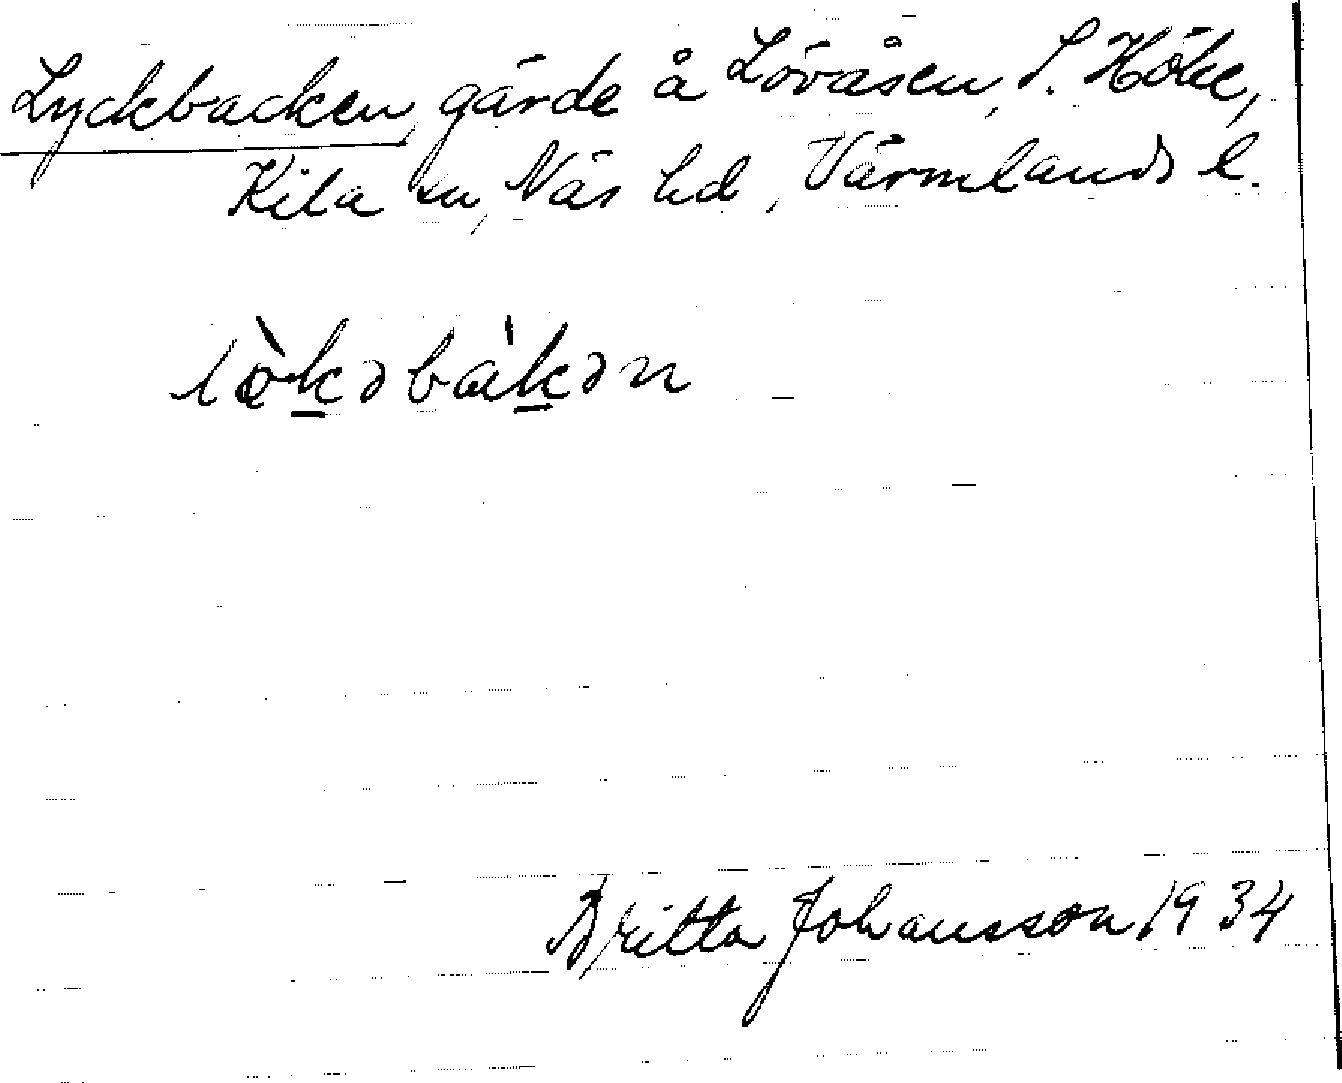 Lyckbacken, gärde å Lövåsen, S. Höke,
Kila sn, Näs hd, Värmlands l.
lö̀kəbàkən
Britta Johansson 1934